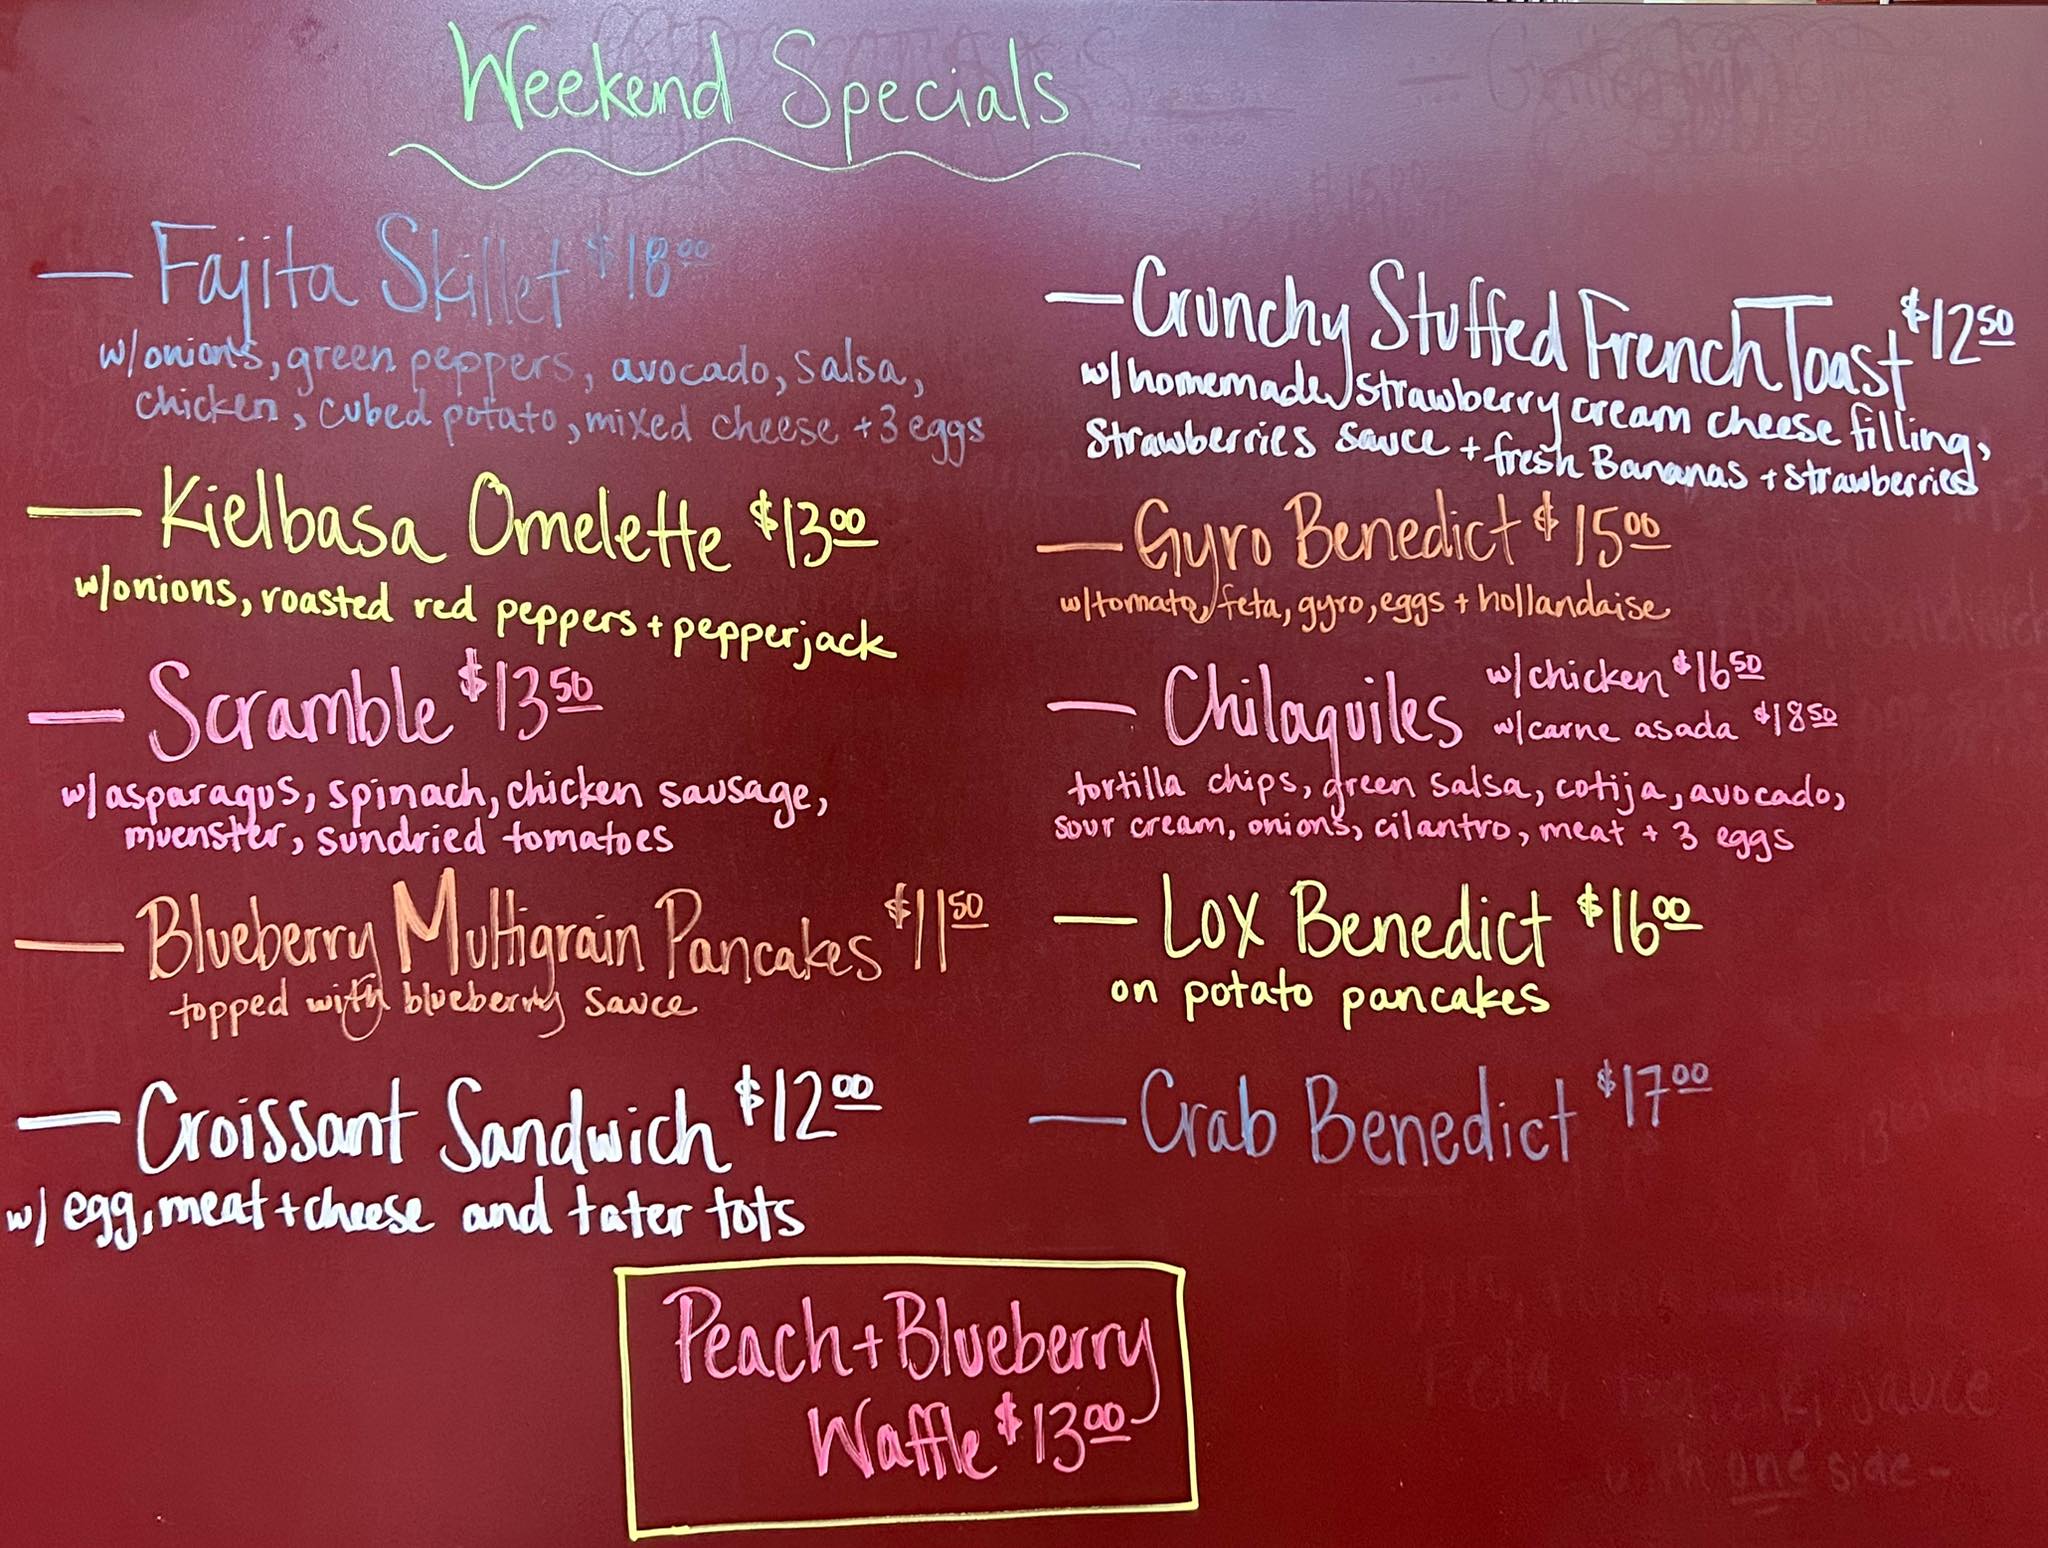 Weekend Specials
— Fajita Skillet $18.00
w/onions, green peppers, avocado, salsa,
chicken, cubed potato, mixed cheese + 3 eggs
— Kielbasa Omelette $13.00
w/onions, roasted red peppers + pepperjack
— Scramble $13.50
w/asparagus, spinach, chicken sausage,
muenster, sundried tomatoes
— Blueberry Multigrain Pancakes $11.50
topped with blueberry sauce
— Croissant Sandwich $12.00
w/ egg, meat + cheese and tater tots
— Crunchy Stuffed French Toast $12.50
w/homemade strawberry cream cheese filling,
Strawberries sauce + fresh Bananas + strawberries
— Gyro Benedict $15.00
w/tomato, feta, gyro, eggs + hollandaise
— Chilaquiles w/chicken $16.50
w/carne asada $18.50
tortilla chips, green salsa, cotija, avocado,
sour cream, onions, cilantro, meat + 3 eggs
— Lox Benedict $16.00
on potato pancakes
— Crab Benedict $17.00
Peach + Blueberry
Waffle $13.00
with one side -